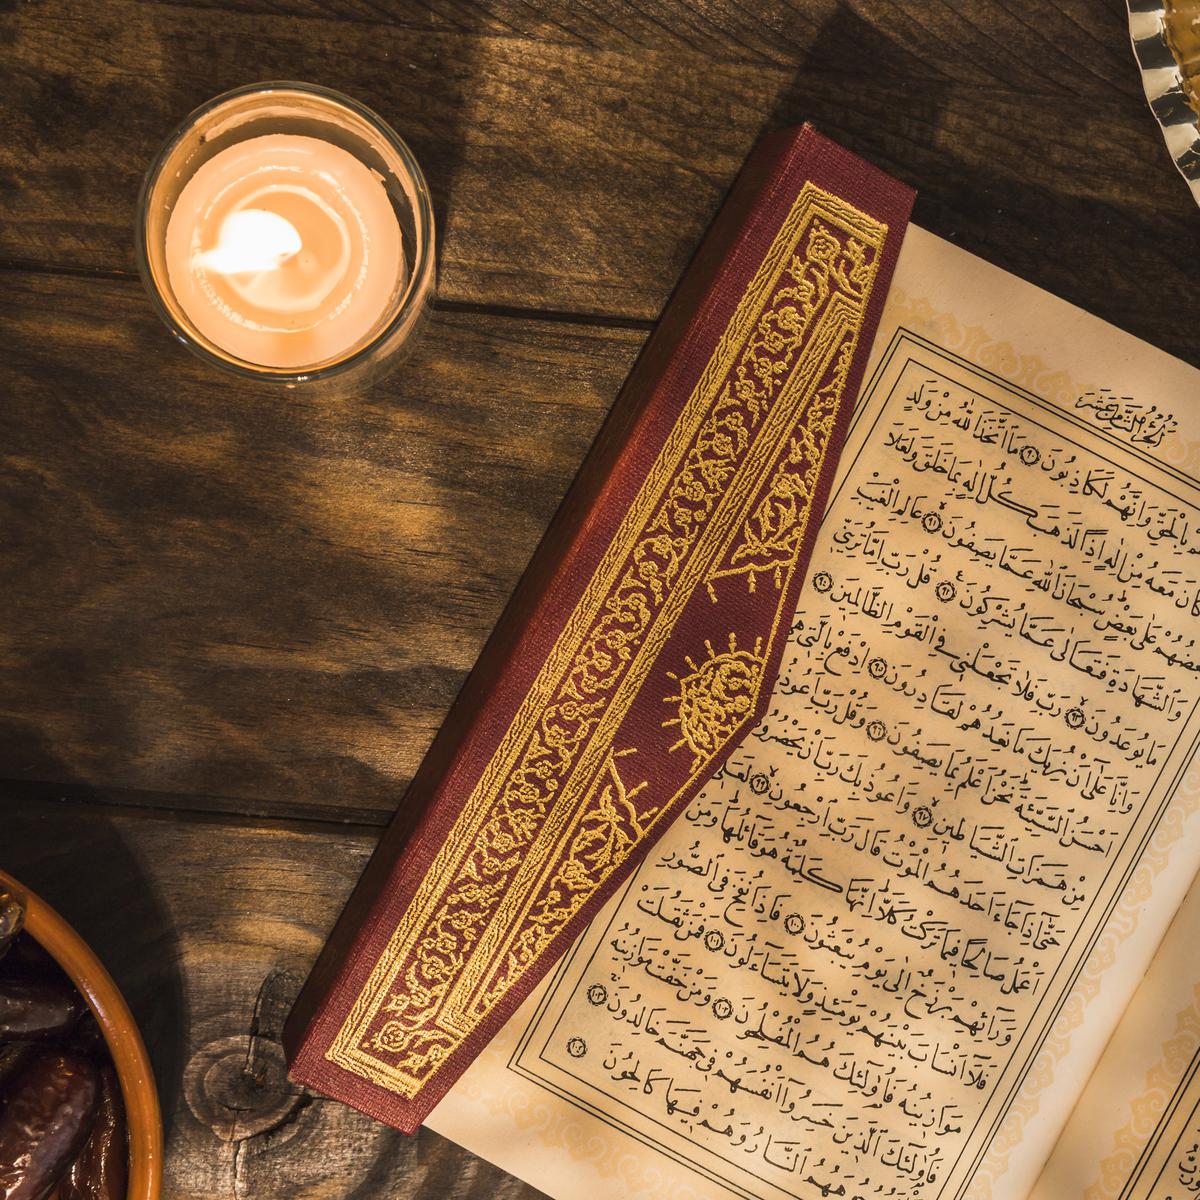 الجُزْءُ الثَّامِنَ عَشَرَ
بِالْحَقِّ وَاِنَّهُمْ لَكَاذِبُونَ ﴿٩٠﴾ مَا اتَّخَذَ اللّٰهُ مِنْ وَلَدٍ
كَانَ مَعَهُ مِنْ اِلٰهٍ اِذًا لَذَهَبَ كُلُّ اِلٰهٍ بِمَا خَلَقَ وَلَعَلَا
بَعْضُهُمْ عَلٰى بَعْضٍ سُبْحَانَ اللّٰهِ عَمَّا يَصِفُونَ ﴿٩١﴾ عَالِمِ الْغَيْبِ
وَالشَّهَادَةِ فَتَعَالٰى عَمَّا يُشْرِكُونَ ﴿٩٢﴾ قُلْ رَبِّ اِمَّا تُرِيَنِّي
مَا يُوعَدُونَ ﴿٩٣﴾ رَبِّ فَلَا تَجْعَلْنِي فِي الْقَوْمِ الظَّالِمِينَ ﴿٩٤﴾
وَاِنَّا عَلٰى اَنْ نُرِيَكَ مَا نَعِدُهُمْ لَقَادِرُونَ ﴿٩٥﴾ اِدْفَعْ بِالَّتِي هِيَ
اَحْسَنُ السَّيِّئَةَ نَحْنُ اَعْلَمُ بِمَا يَصِفُونَ ﴿٩٦﴾ وَقُلْ رَبِّ اَعُوذُ
مِنْ هَمَزَاتِ الشَّيَاطِينِ ﴿٩٧﴾ وَاَعُوذُ بِكَ رَبِّ اَنْ يَحْضُرُونِ
حَتّٰى اِذَا جَاءَ اَحَدَهُمُ الْمَوْتُ قَالَ رَبِّ ارْجِعُونِ ﴿٩٩﴾ لَعَلِّي
اَعْمَلُ صَالِحًا فِيمَا تَرَكْتُ كَلَّا اِنَّهَا كَلِمَةٌ هُوَ قَائِلُهَا وَمِنْ
وَرَائِهِمْ بَرْزَخٌ اِلٰى يَوْمِ يُبْعَثُونَ ﴿١٠٠﴾ فَاِذَا نُفِخَ فِي الصُّورِ
فَلَا اَنْسَابَ بَيْنَهُمْ يَوْمَئِذٍ وَلَا يَتَسَاءَلُونَ ﴿١٠١﴾ فَمَنْ ثَقُلَتْ
مَوَازِينُهُ فَاُولٰئِكَ هُمُ الْمُفْلِحُونَ ﴿١٠٢﴾ وَمَنْ خَفَّتْ مَوَازِينُهُ
فَاُولٰئِكَ الَّذِينَ خَسِرُوا اَنْفُسَهُمْ فِي جَهَنَّمَ خَالِدُونَ ﴿١٠٣﴾
النَّارُ وَهُمْ فِيهَا كَالِحُونَ ﴿١٠٤﴾